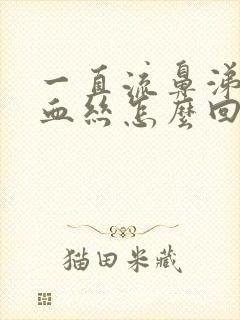 一直流鼻涕
血丝怎麼回
猫田米藏